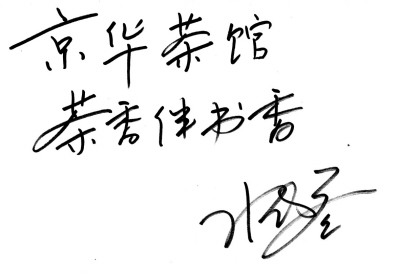 京华茶馆
茶香伴书香